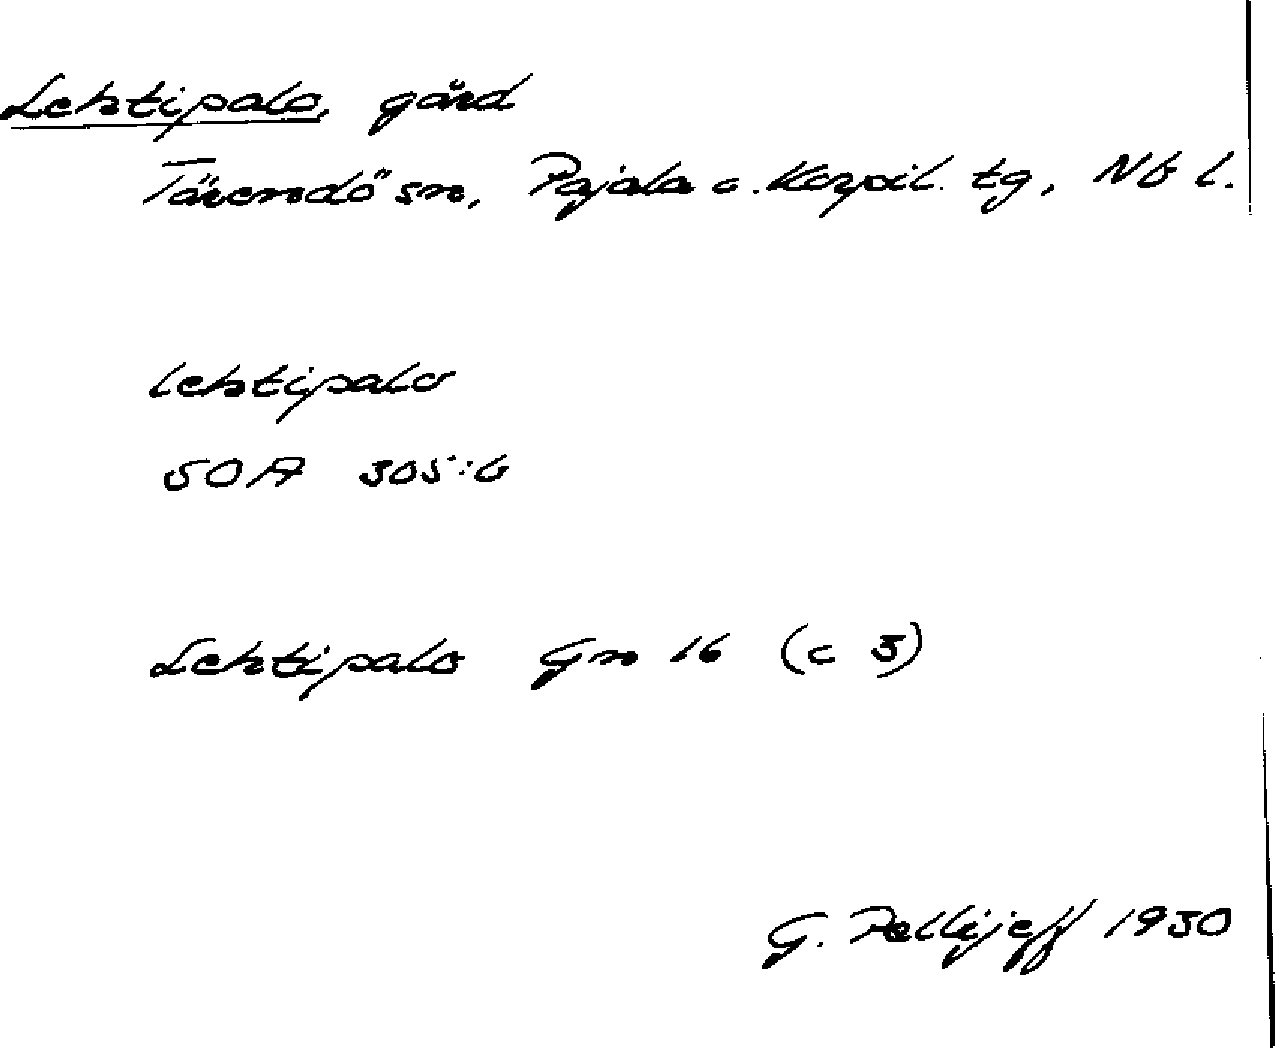 Lehtipalo, gård
Tärendö sn, Pajala o. Korpil. tg, Nb l.
lehtipalo
SOA 305:6
Lehtipalo Gn 16 (c 3)
G. Pellijeff 1950